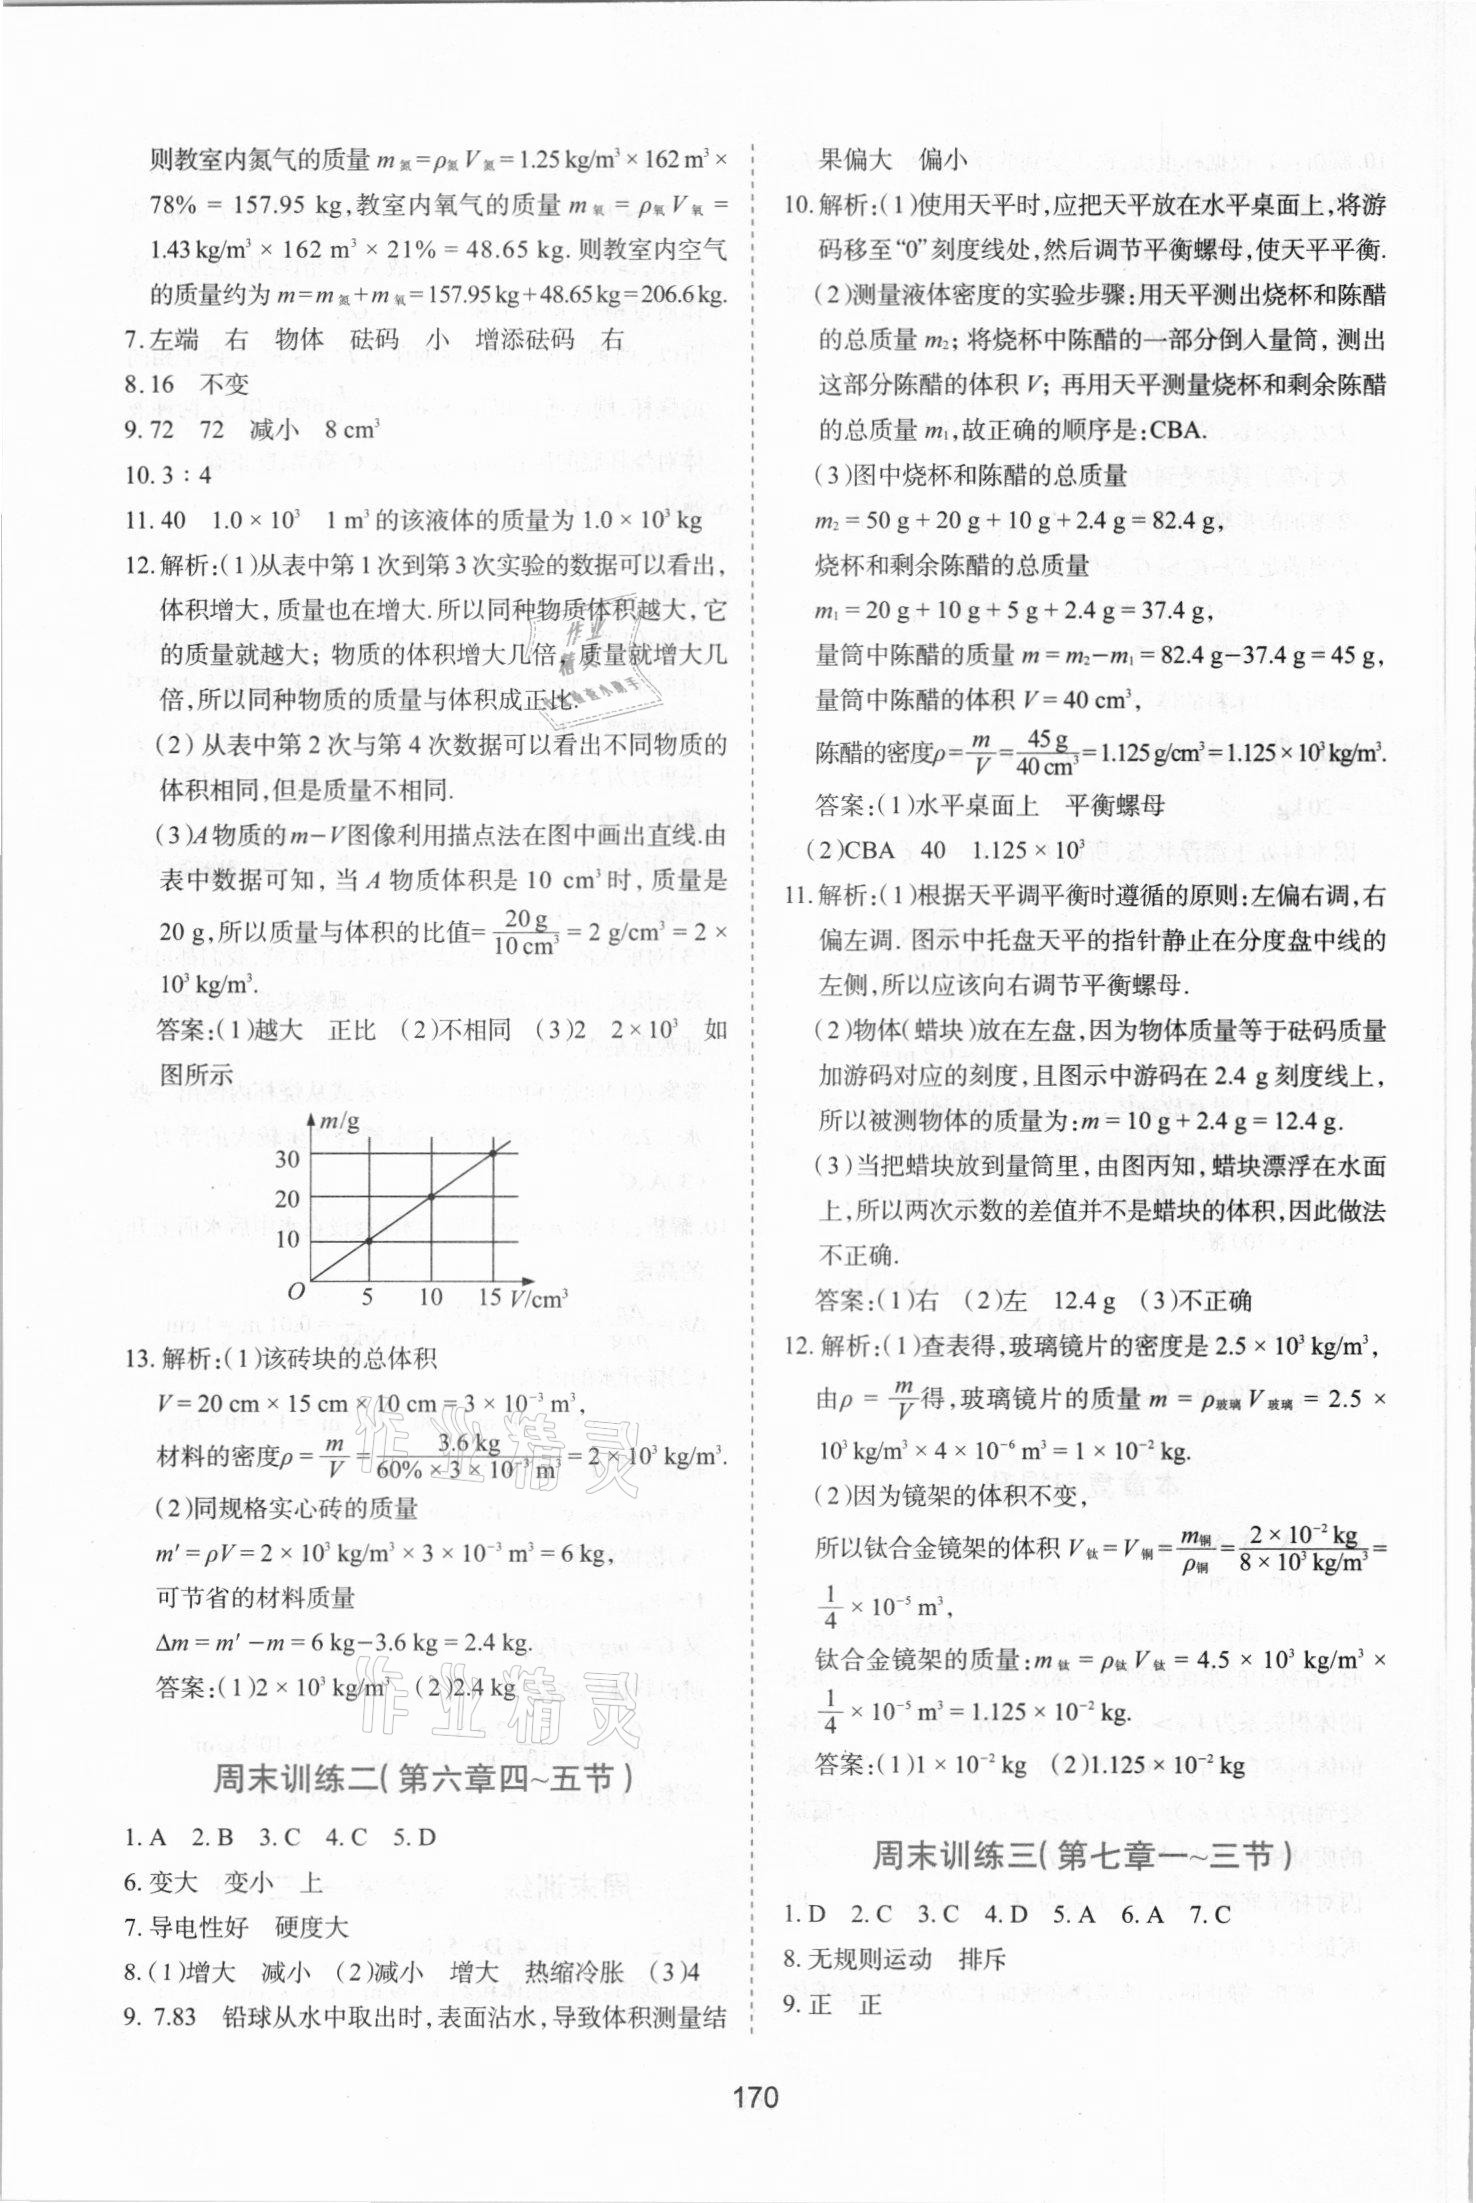 则教室内氮气的质量 m氮=ρ氮V氮=1.25 kg/m³×162 m³×
78% = 157.95 kg,教室内氧气的质量 m氧 = ρ氧V氧 =
1.43 kg/m³ × 162 m³ × 21% = 48.65 kg. 则教室内空气
的质量约为 m=m氮+m氧=157.95 kg+48.65 kg=206.6 kg.
7. 左端 右 物体 砝码 小 增添砝码 右
8. 16 不变
9. 72 72 减小 8 cm³
10. 3∶4
11. 40 1.0×10³ 1 m³的该液体的质量为1.0×10³ kg
12. 解析:(1)从表中第1次到第3次实验的数据可以看出,
体积增大,质量也在增大.所以同种物质体积越大,它
的质量就越大;物质的体积增大几倍,质量就增大几
倍,所以同种物质的质量与体积成正比.
(2)从表中第2次与第4次数据可以看出不同物质的
体积相同,但是质量不相同.
(3)A物质的m-V图像利用描点法在图中画出直线.由
表中数据可知,当A物质体积是10 cm³时,质量是
20 g,所以质量与体积的比值=20 g/10 cm³=2 g/cm³=2×
10³ kg/m³.
答案:(1)越大 正比 (2)不相同 (3)2 2×10³ 如
图所示
m/g
30
20
10
O 5 10 15 V/cm³
13. 解析:(1)该砖块的总体积
V=20 cm×15 cm×10 cm=3×10⁻³ m³,
材料的密度ρ=m/V=3.6 kg/(60%×3×10⁻³ m³)=2×10³ kg/m³.
(2)同规格实心砖的质量
m′=ρV=2×10³ kg/m³×3×10⁻³ m³=6 kg,
可节省的材料质量
Δm=m′-m=6 kg-3.6 kg=2.4 kg.
答案:(1)2×10³ kg/m³ (2)2.4 kg
周末训练二(第六章四~五节)
1. A 2. B 3. C 4. C 5. D
6. 变大 变小 上
7. 导电性好 硬度大
8. (1)增大 减小 (2)减小 增大 热缩冷胀 (3)4
9. 7.83 铅球从水中取出时,表面沾水,导致体积测量结
果偏大 偏小
10. 解析:(1)使用天平时,应把天平放在水平桌面上,将游
码移至“0”刻度线处,然后调节平衡螺母,使天平平衡.
(2)测量液体密度的实验步骤:用天平测出烧杯和陈醋
的总质量m₂;将烧杯中陈醋的一部分倒入量筒,测出
这部分陈醋的体积V;再用天平测量烧杯和剩余陈醋
的总质量m₁,故正确的顺序是:CBA.
(3)图中烧杯和陈醋的总质量
m₂=50 g+20 g+10 g+2.4 g=82.4 g,
烧杯和剩余陈醋的总质量
m₁=20 g+10 g+5 g+2.4 g=37.4 g,
量筒中陈醋的质量m=m₂-m₁=82.4 g-37.4 g=45 g,
量筒中陈醋的体积V=40 cm³,
陈醋的密度ρ=m/V=45 g/40 cm³=1.125 g/cm³=1.125×10³ kg/m³.
答案:(1)水平桌面上 平衡螺母
(2)CBA 40 1.125×10³
11. 解析:(1)根据天平调平衡时遵循的原则:左偏右调,右
偏左调.图示中托盘天平的指针静止在分度盘中线的
左侧,所以应该向右调节平衡螺母.
(2)物体(蜡块)放在左盘,因为物体质量等于砝码质量
加游码对应的刻度,且图示中游码在2.4 g刻度线上,
所以被测物体的质量为:m=10 g+2.4 g=12.4 g.
(3)当把蜡块放到量筒里,由图丙知,蜡块漂浮在水面
上,所以两次示数的差值并不是蜡块的体积,因此做法
不正确.
答案:(1)右 (2)左 12.4 g (3)不正确
12. 解析:(1)查表得,玻璃镜片的密度是2.5×10³ kg/m³,
由ρ=m/V得,玻璃镜片的质量m=ρ玻璃V玻璃=2.5×
10³ kg/m³×4×10⁻⁶ m³=1×10⁻² kg.
(2)因为镜架的体积不变,
所以钛合金镜架的体积V钛=V铜=m铜/ρ铜=2×10⁻² kg/(8×10³ kg/m³)=
1/4×10⁻⁵ m³,
钛合金镜架的质量:m钛=ρ钛V钛=4.5×10³ kg/m³×
1/4×10⁻⁵ m³=1.125×10⁻² kg.
答案:(1)1×10⁻² kg (2)1.125×10⁻² kg
周末训练三(第七章一~三节)
1. D 2. C 3. C 4. D 5. A 6. A 7. C
8. 无规则运动 排斥
9. 正 正
170
作业精灵
作业精灵